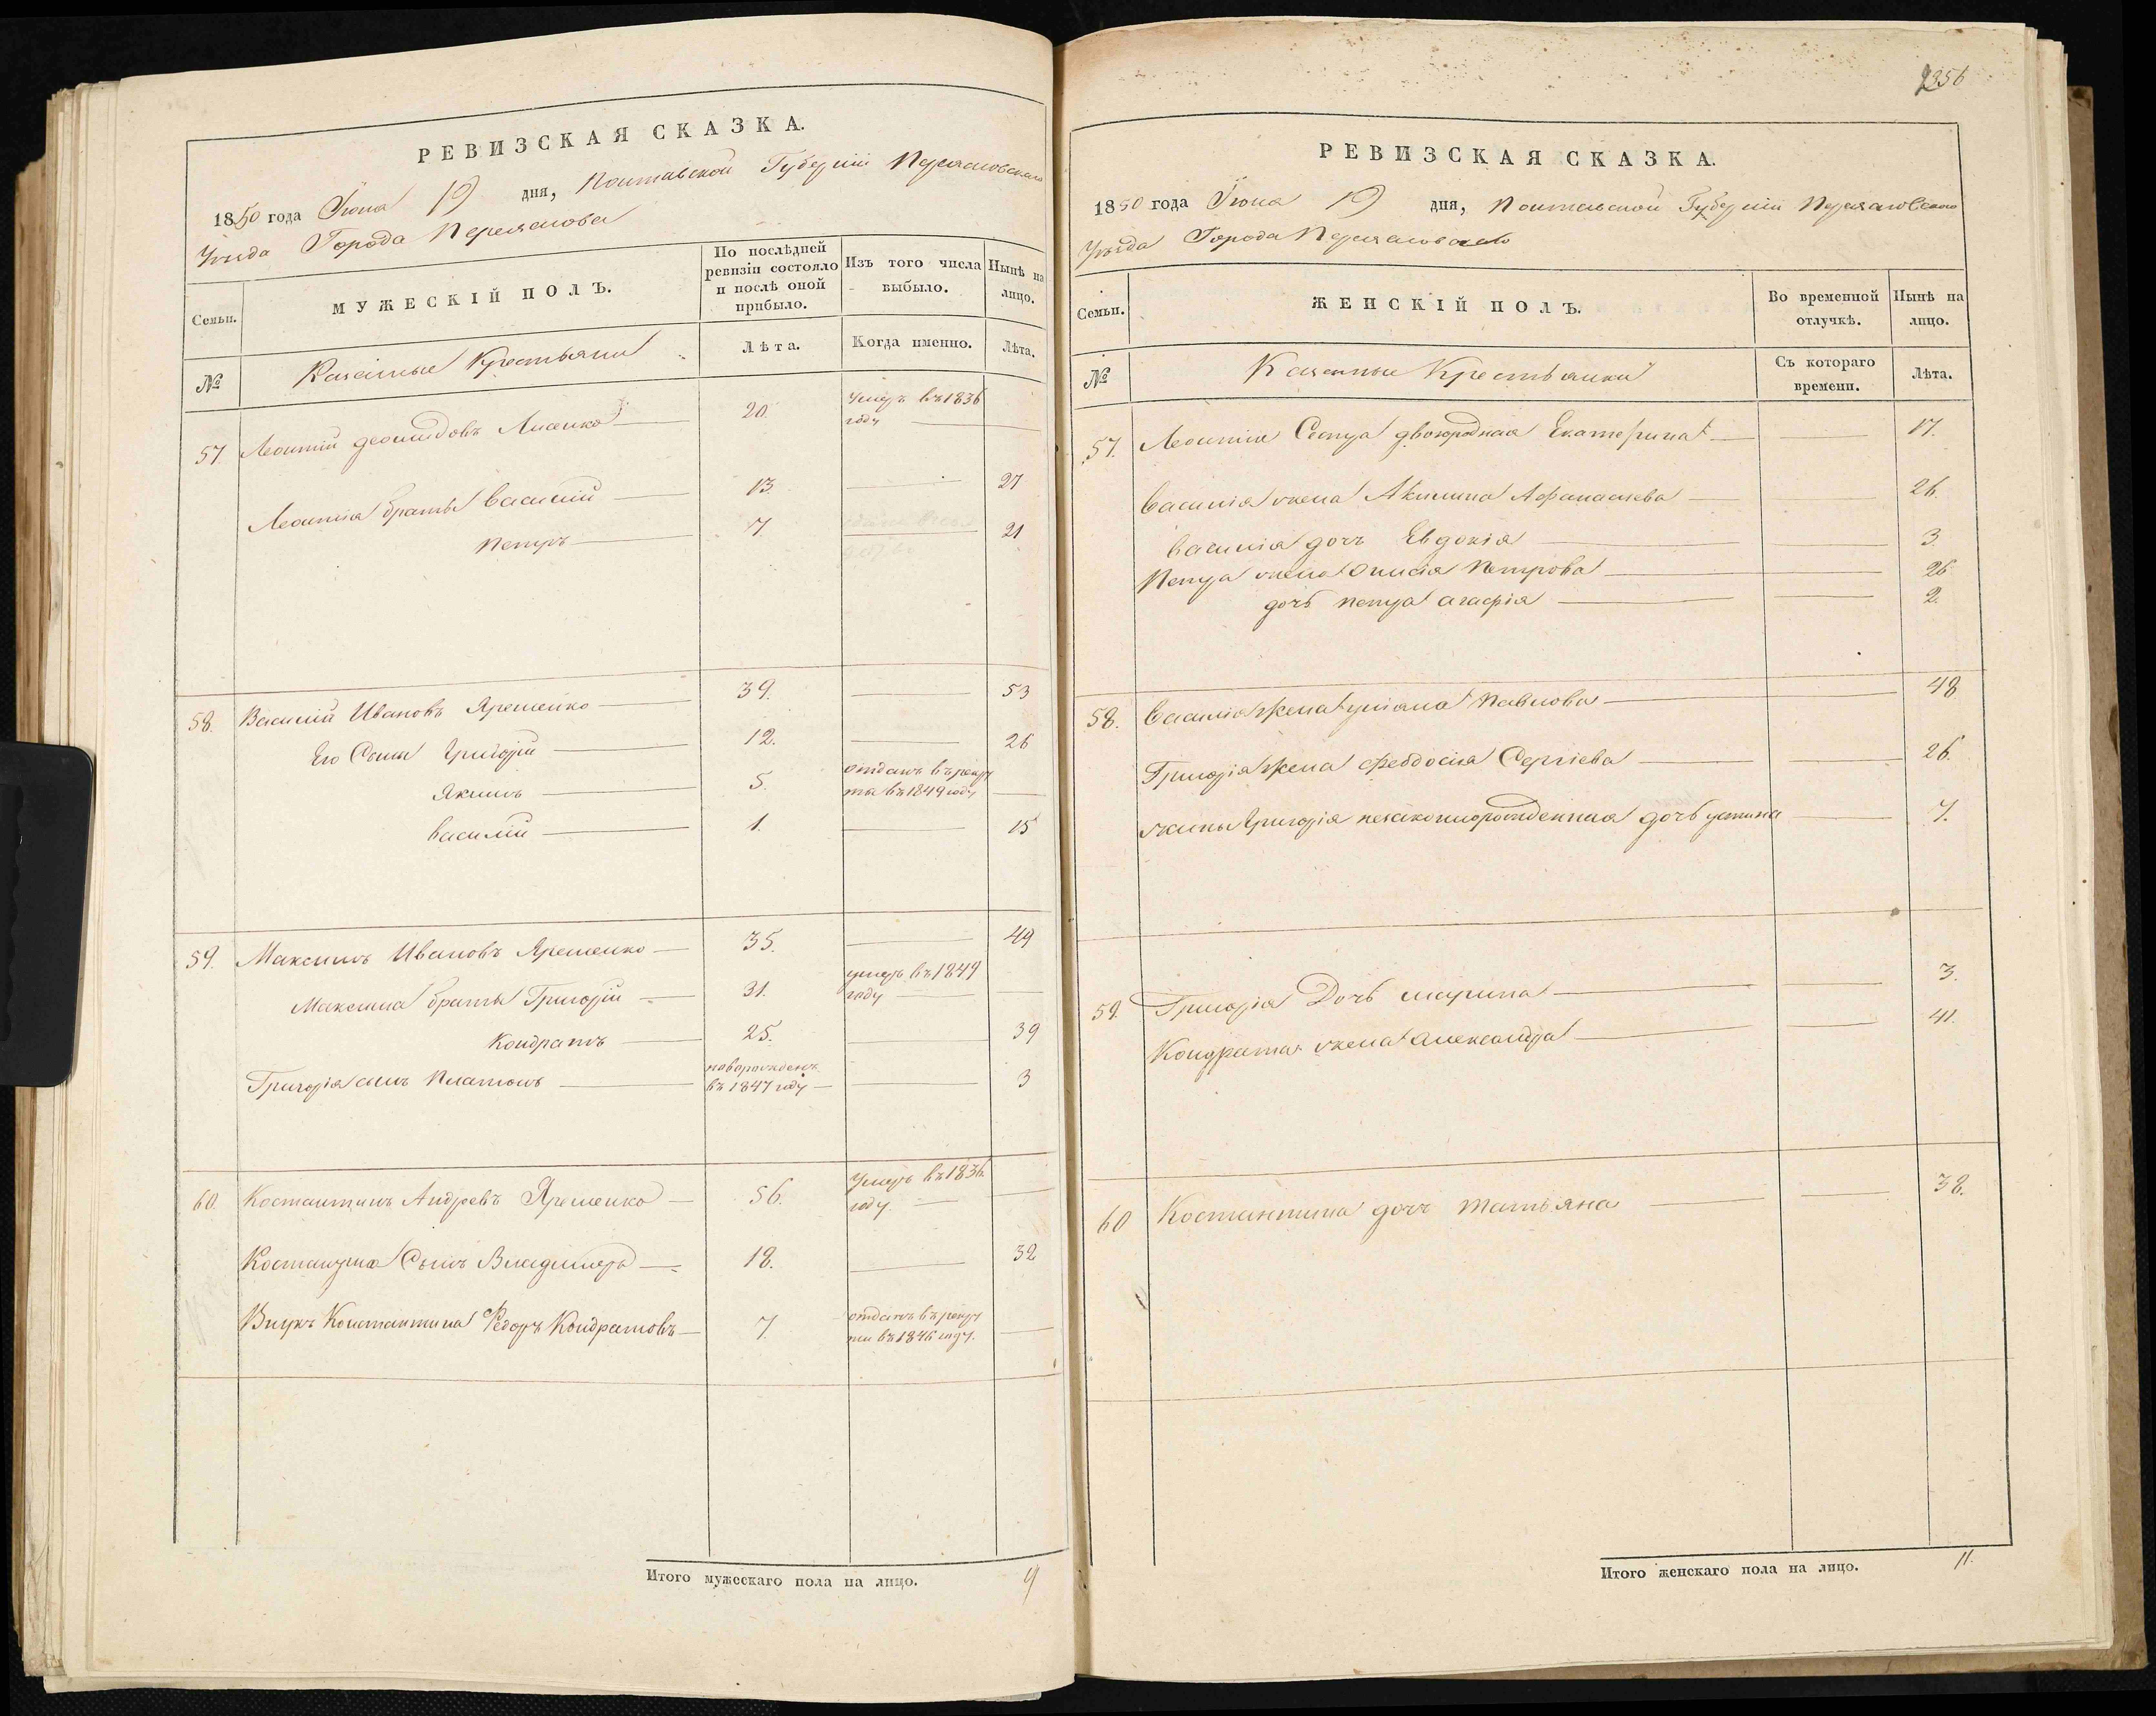 РЕВИЗСКАЯ СКАЗКА.
1850 года Июня 19 дня, Полтавской Губерніи Переяславскаго
Уѣзда Города Переяслова
Семьи. МУЖЕСКІЙ ПОЛЪ. По послѣдней ревизіи состояло и послѣ оной прибыло. Изъ того числа выбыло. Нынѣ на лицо.
№ Казенные Крестьяни Лѣта. Когда именно. Лѣта.
57. Леонтій Лисенко 20. Умеръ въ 1836 году
Леонтія братья Василій 13. 27
Петръ 7. 21
58. Василій Ивановъ Яременко 39. 53
Его Сыны Григорій 12. 26
Якимъ 5. отданъ въ рекруты въ 1849 году
Василій 1. 15
59. Максимъ Ивановъ Яременко 35. 49
Максима братья Григорій 31. умеръ въ 1849 году
Кондратъ 25. 39
Григорія сынъ Платонъ новорожденъ въ 1847 году 3
60. Костантинъ Андреевъ Яременко 56. Умеръ въ 1836 году.
Костантина Сынъ Владимеръ 18. 32
Внукъ Константина Федоръ Кондратовъ 7. отданъ въ рекруты въ 1846 году.
Итого мужескаго пола на лицо. 9
356
РЕВИЗСКАЯ СКАЗКА.
1850 года Июня 19 дня, Полтавской Губерніи Переяславскаго
Уѣзда Города
Семьи. ЖЕНСКІЙ ПОЛЪ. Во временной отлучкѣ. Нынѣ на лицо.
№ Казенные Крестьянки Съ котораго времени. Лѣта.
57. Леонтія Сестра двоюродная Екатерина 17.
Василія жена Акилина Афанасіева 26.
Василія дочь Евдокія 3.
Петра жена Онисія Петрова 26
дочь Петра Агафія 2.
58. Василія жена Уліяна Павлова 48
Григорія жена Феодосія Сергіева 26.
жены Григорія незаконнорожденная дочь Устина 7.
59. Григорія Дочь Марина 3.
Кондрата жена Александра 41.
60 Костантина дочь Татьяна 38.
Итого женскаго пола на лицо. 11.